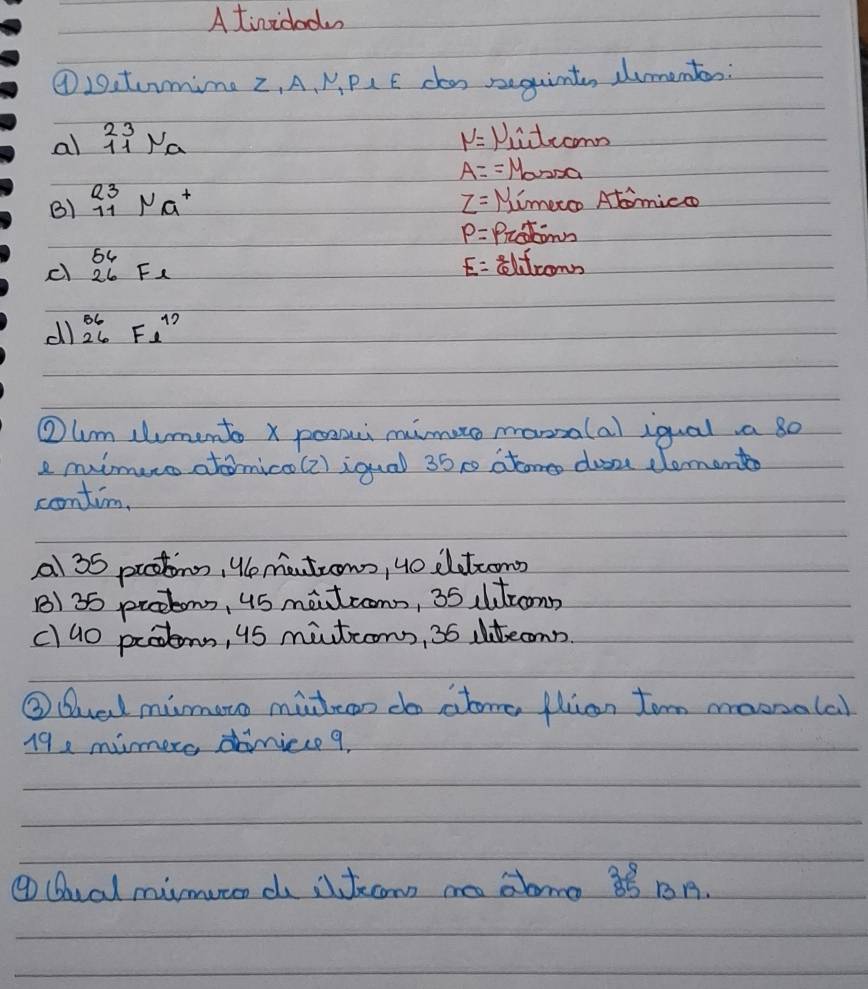 Atividades
① Determine Z, A, N, P e E dos seguintes elementos:
a) 23 11 Na
N= Nêutrons
A= = Massa
B) 23 11 Na+
Z= Número Atômico
P= Prótons
c) 26 Fe
E= elétrons
d) 56 26 Fe
② Um elemento x possui número massa(a) igual a 80
e número atômico(z) igual 35 o átomo desse elemento
contém.
a) 35 protôns, 46 nêutrons, 40 életrons
B) 35 prótons, 45 nêutrons, 35 elétrons
c) 40 prótons, 45 nêutrons, 35 elétrons.
③ Qual número nêutros do átomo flúor tem massa(a)
19 e número atômico 9.
④ Qual número de elétrons no átomo 35 BR.